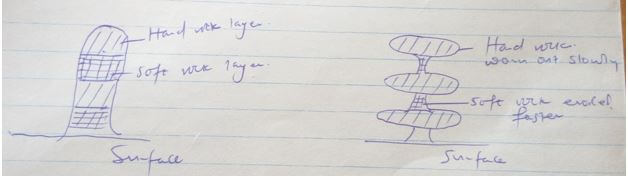 Hard rock layer.
Soft rock layer.
Surface
Hard rock.
worn out slowly
Soft rock eroded
faster
Surface